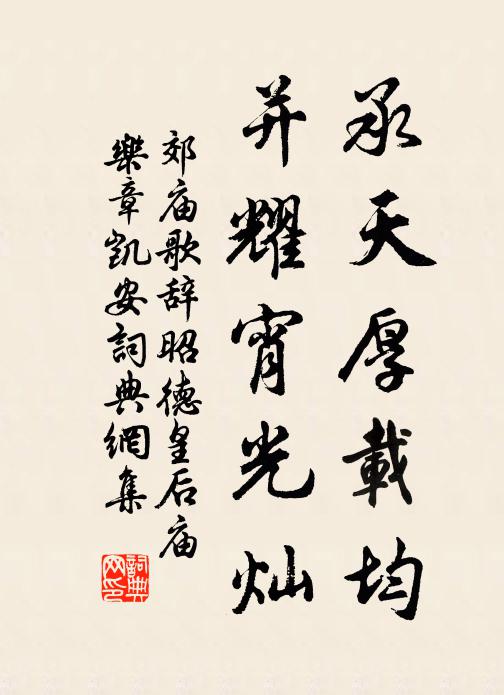 承天厚載均
并耀宵光灿
郊庙歌辞昭德皇后庙
樂章凯安詞典網集
詞典
网印